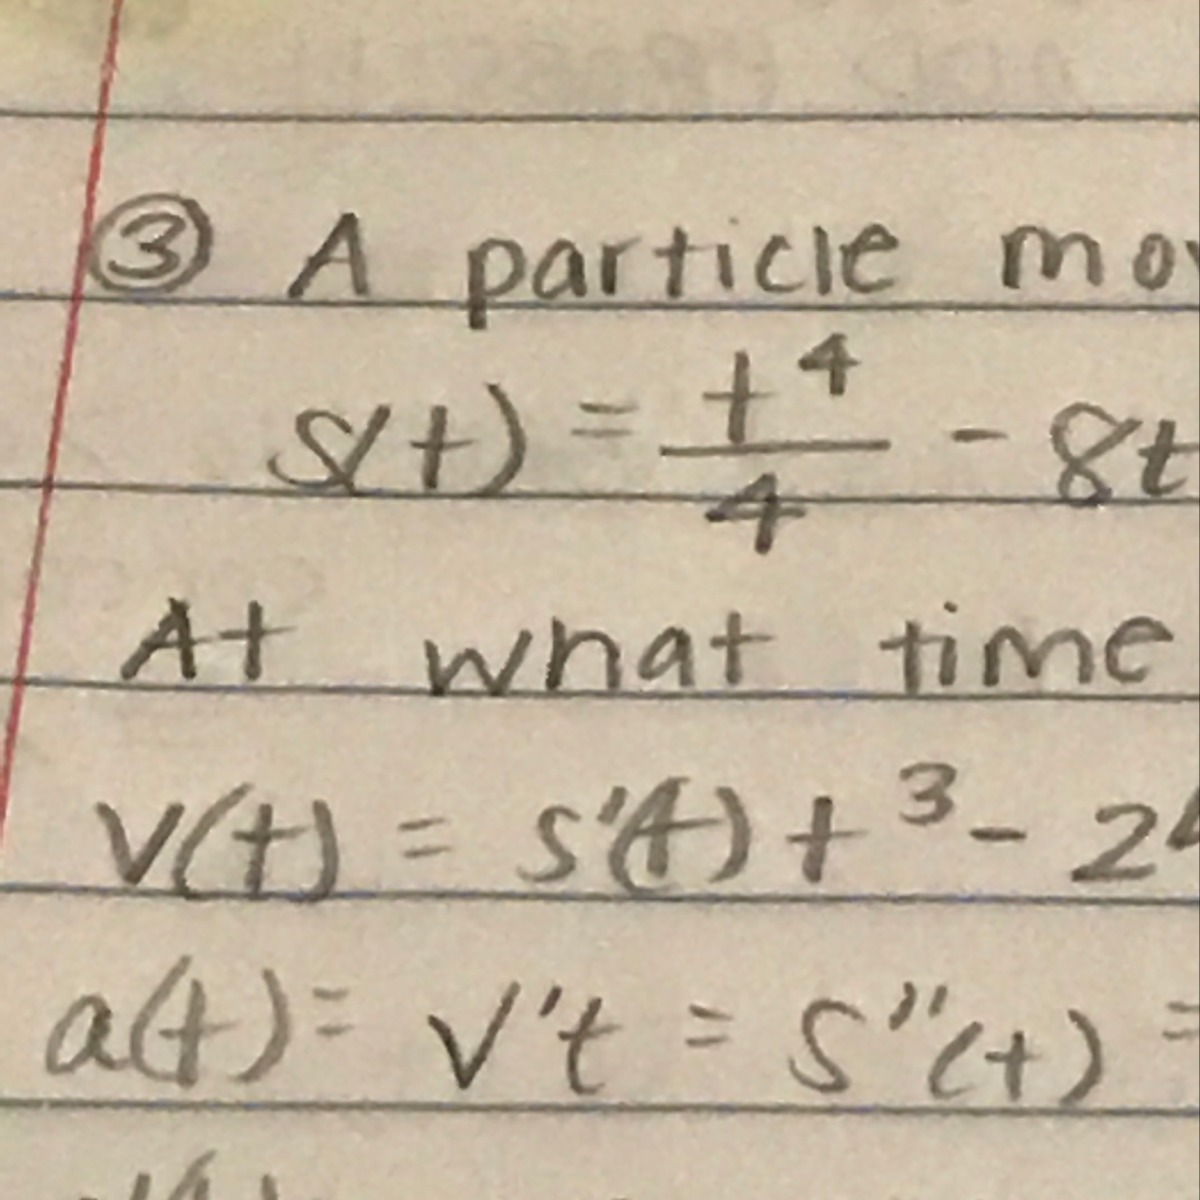 ③ A particle mo
s(t) = t⁴/4 - 8t
At what time
v(t) = s'(t) t³ - 2
a(t) = v't = s''(t) =